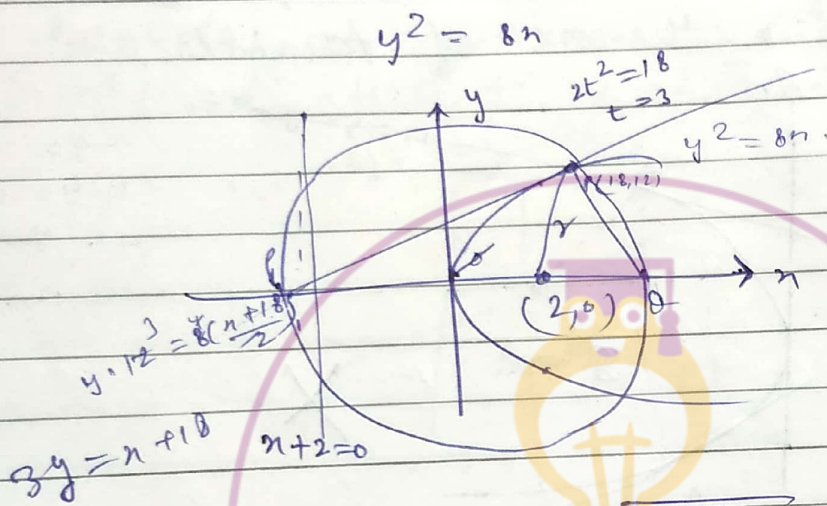 y² = 8x
2t² = 18
t = 3
y
y² = 8x
(18,12)
r
x
(2,0)
Q
P
y·12 = 8(x+18/2)
3
4
3y = x+18
x+2=0